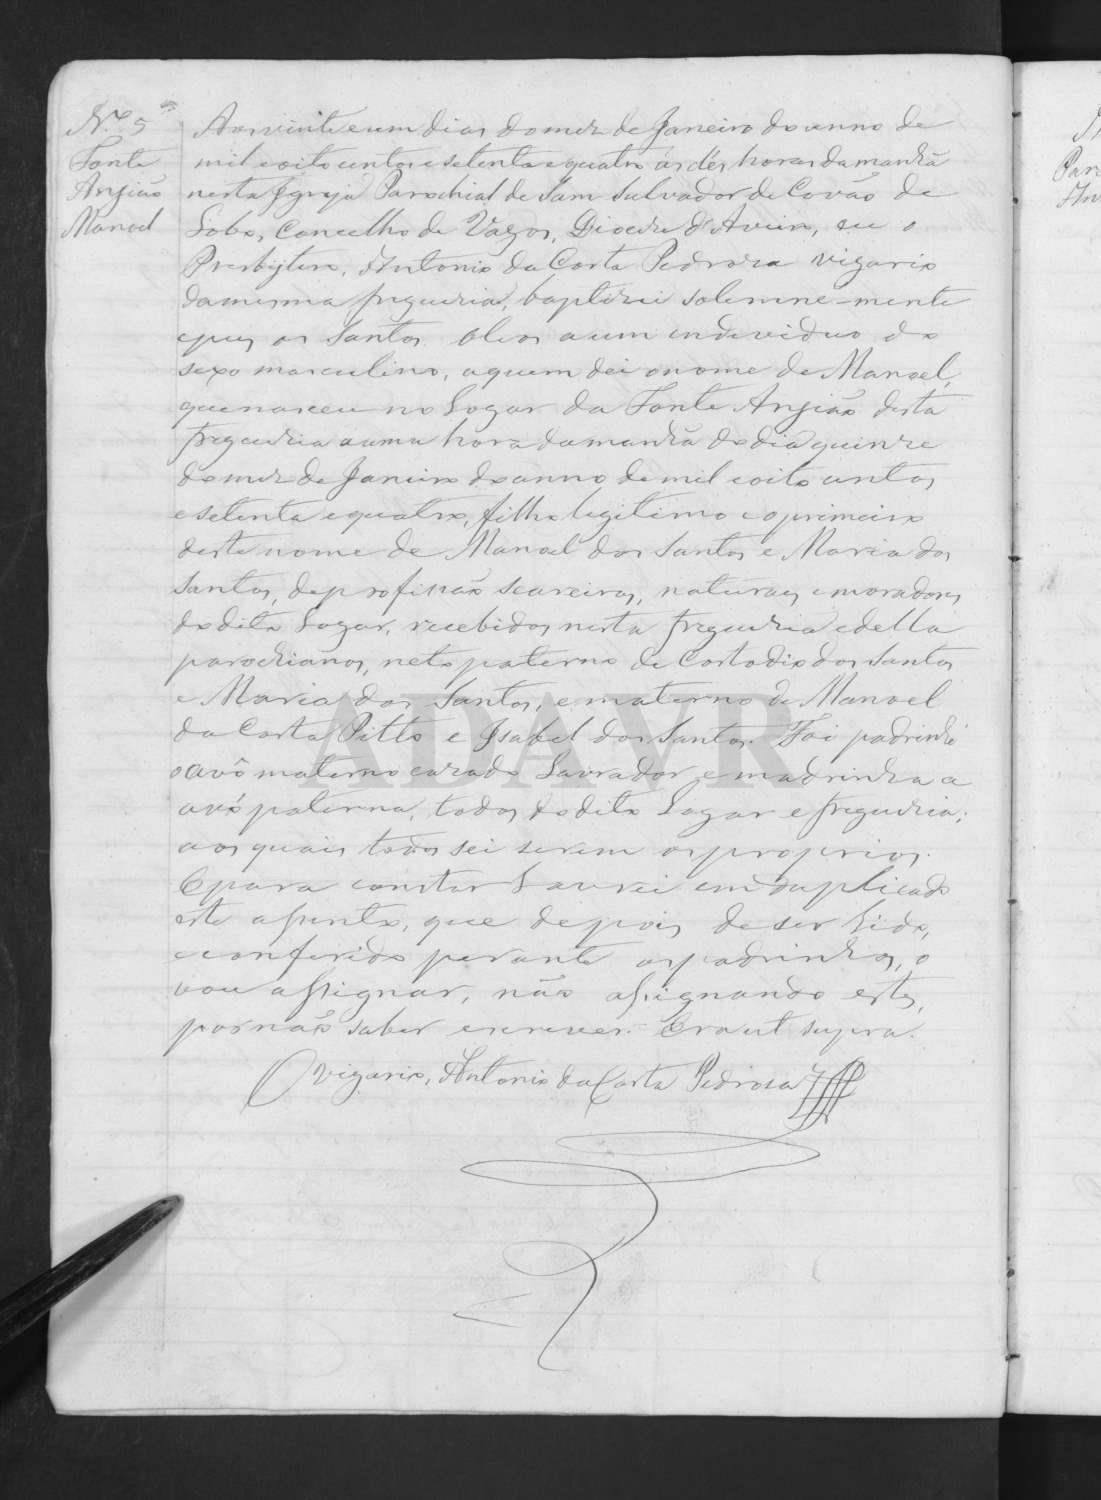 N.º 5
Fonte
Angião
Manoel
Aos vinte e um dias do mez de Janeiro do anno de
mil e oito centos e setenta e quatro ás dés horas da manhã
nesta Igreja Parochial de Sam Salvador de Covão de
Lobo, Concelho de Vagos, Diocese d'Aveiro, eu o
Presbytero, Antonio da Costa Pedroza vigario
da mesma freguezia, baptizei solemne-mente
e puz os Santos oleos a um endeviduo do
sexo masculino, a quem dei o nome de Manoel,
que nasceu no Logar da Fonte Angião desta
freguezia a uma hora da manhã do dia quinze
do mez de Janeiro do anno de mil e oito centos
e setenta e quatro, filho legitimo e o primeiro
deste nome de Manoel dos Santos e Maria dos
Santos, de profissão seareiros, naturaes e moradores
do dito Logar, recebidos nesta freguezia e della
parochianos, neto paterno de Costodio dos Santos
e Maria dos Santos, e materno de Manoel
da Costa Pitto e Isabel dos Santos. Foi padrinho
o avô materno cazado Lavrador, e madrinha a
avó paterna, todos do dito Logar e freguezia;
aos quais todos sei serem os proprios.
E para constar Lavrei em duplicado
este assento, que depois de ser Lido,
e conferido perante os padrinhos, o
vou assignar, não assignando estes,
por não saber escrever. Era ut supra.
O vigario, Antonio da Costa Pedrosa
ADAVR